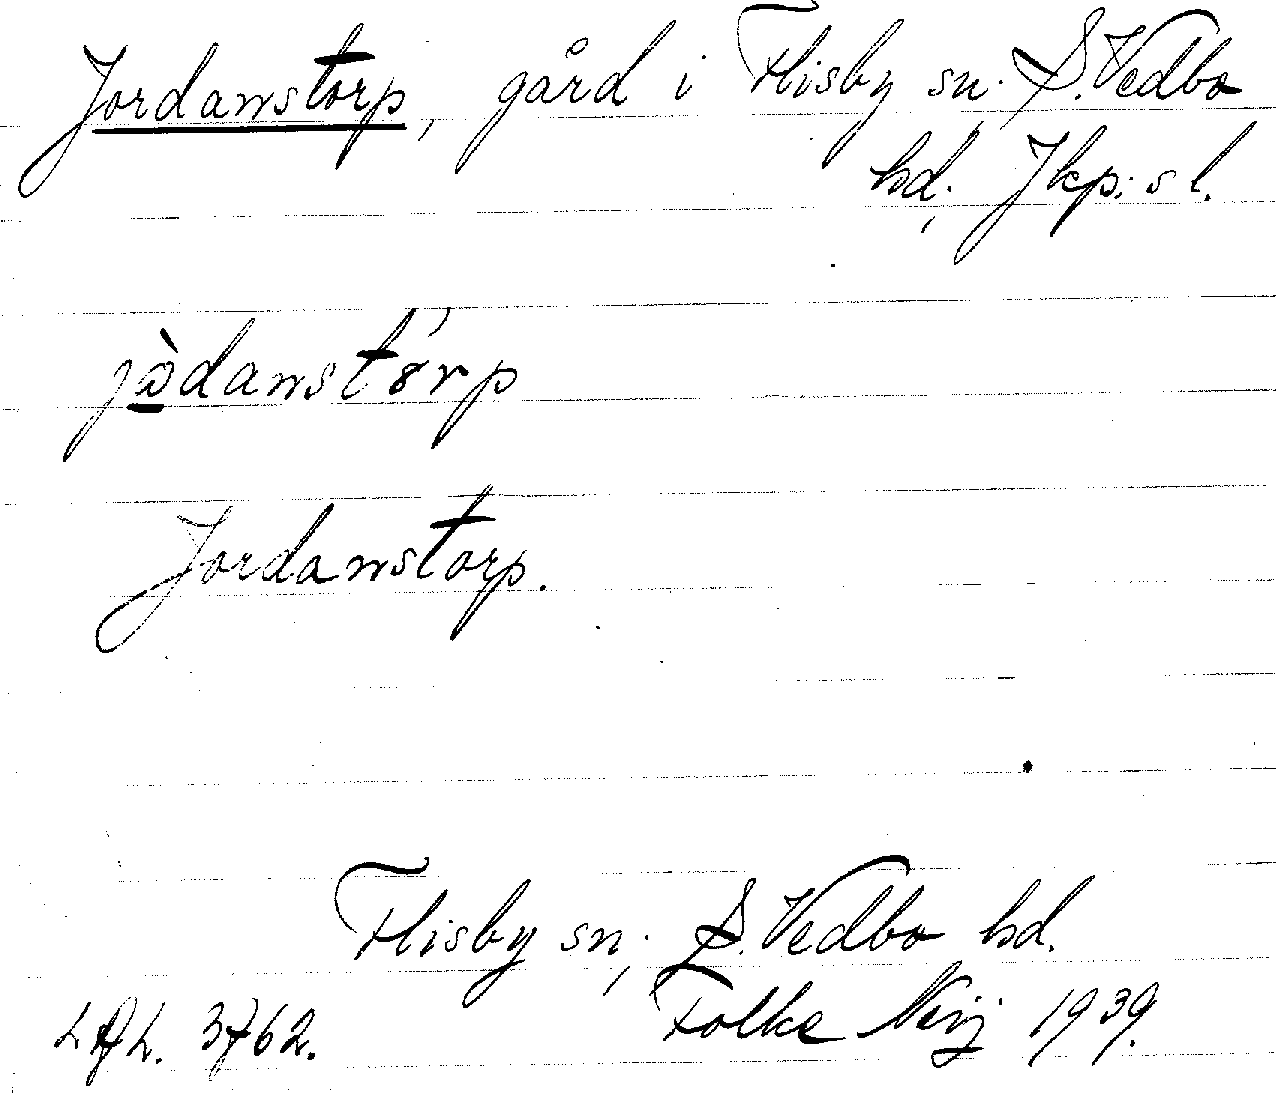 Jordanstorp, gård i Flisby sn. S. Vedbo
hd., Jkp: sl.
jòdanstórp
Jordanstorp.
Flisby sn., S. Vedbo hd.
Folke Neij 1939.